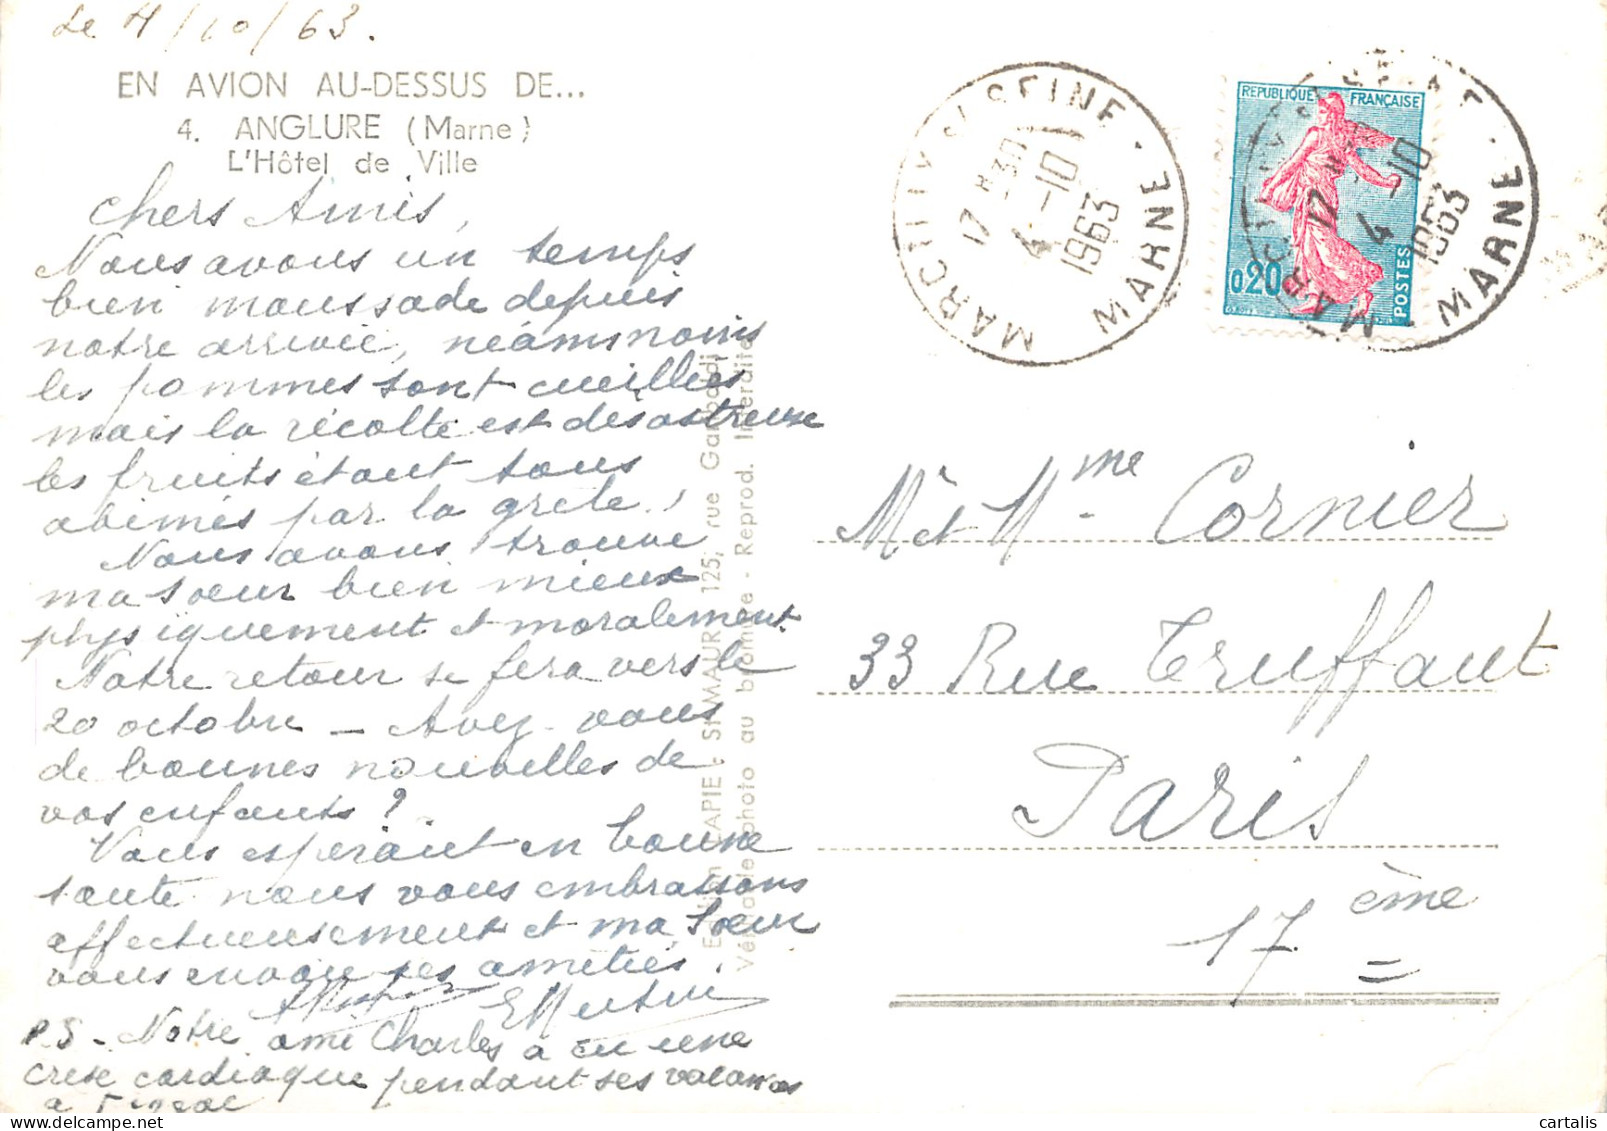 Le 4/10/63.
EN AVION AU-DESSUS DE...
4. ANGLURE (Marne)
L'Hôtel de Ville
chers Amis,
Nous avons un temps
bien maussade depuis
notre arrivée, néammoins
les pommes sont cueillies
mais la récolte est désastreuse
les fruits étant tous
abimés par la grêle.
Nous avons trouvé
ma soeur bien mieux
physiquement et moralement.
Notre retour se fera vers le
20 octobre - Avez-vous
de bonnes nouvelles de
vos enfants ?
Vous espérant en bonne
santé nous vous embrassons
affectueusement et ma soeur
vous envoie ses amitiés.
P.S - Notre ami Charles a eu une
crise cardiaque pendant ses vacances
à
LAPIE - St-MAUR 125, rue Garibaldi
Véritable photo au bromure - Reprod. Interdite
MARCILLY S/ SEINE · MARNE
17 H 30
4 -10
1963
REPUBLIQUE FRANÇAISE
0,20
POSTES
17 H 30
4 -10
1963
MARNE
Mr et Mme Cornier
33 Rue Truffaut
Paris
17 ème
cartalis